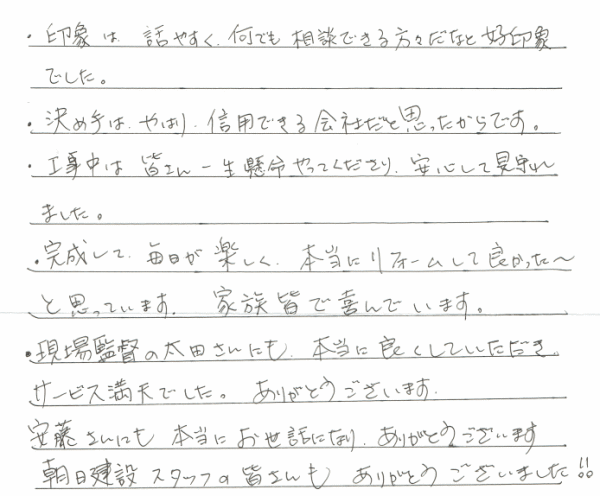 ・印象は、話やすく、何でも相談できる方々だなと好印象
でした。
・決め手は、やはり、信用できる会社だと思ったからです。
・工事中は皆さん一生懸命やってくださり、安心して見守れ
ました。
・完成して、毎日が楽しく、本当にリフォームして良かった〜
と思っています。家族皆で喜んでいます。
・現場監督の太田さんにも、本当に良くしていただき、
サービス満天でした。ありがとうございます。
安藤さんにも本当にお世話になり、ありがとうございます
朝日建設スタッフの皆さんもありがとうございました!!